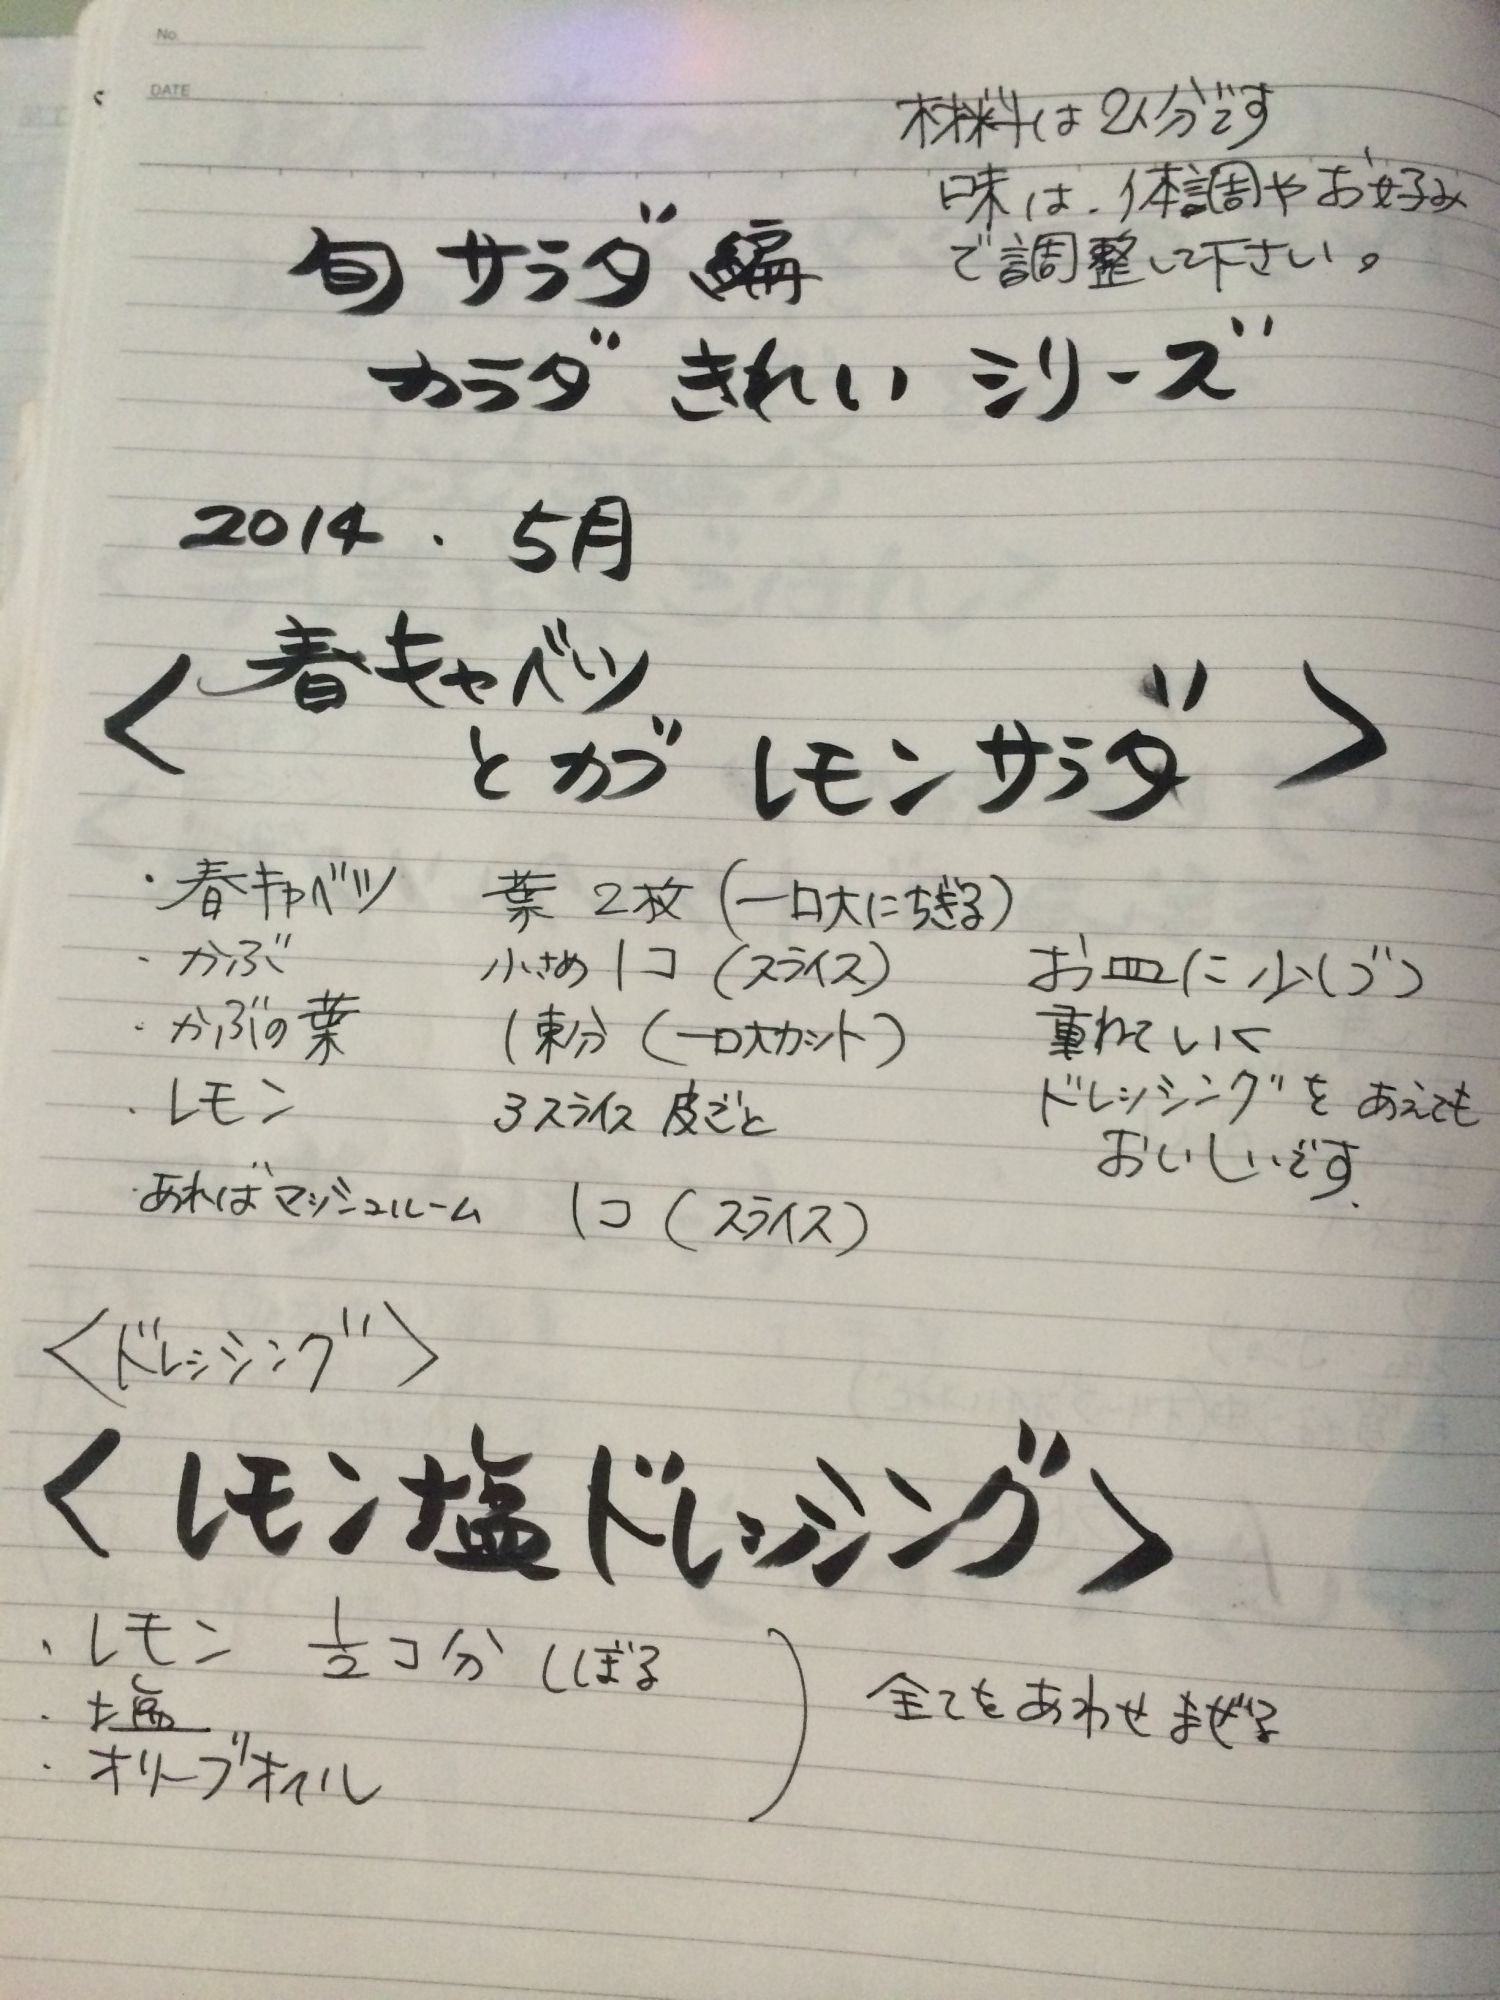 No.
DATE
材料は2人分です
味は、体調やお好み
で調整して下さい。
旬サラダ編
カラダきれいシリーズ
2014．5月
〈春キャベツ
とカブ レモンサラダ〉
・春キャベツ 葉2枚(一口大にちぎる)
・かぶ 小さめ1コ(スライス)
・かぶの葉 1束分(一口大カット)
・レモン 3スライス皮ごと
・あればマッシュルーム 1コ(スライス)
お皿に少しづつ
重ねていく
ドレッシングをあえても
おいしいです.
〈ドレッシング〉
〈レモン塩ドレッシング〉
・レモン 1/2コ分 しぼる
・塩
・オリーブオイル
全てをあわせまぜる